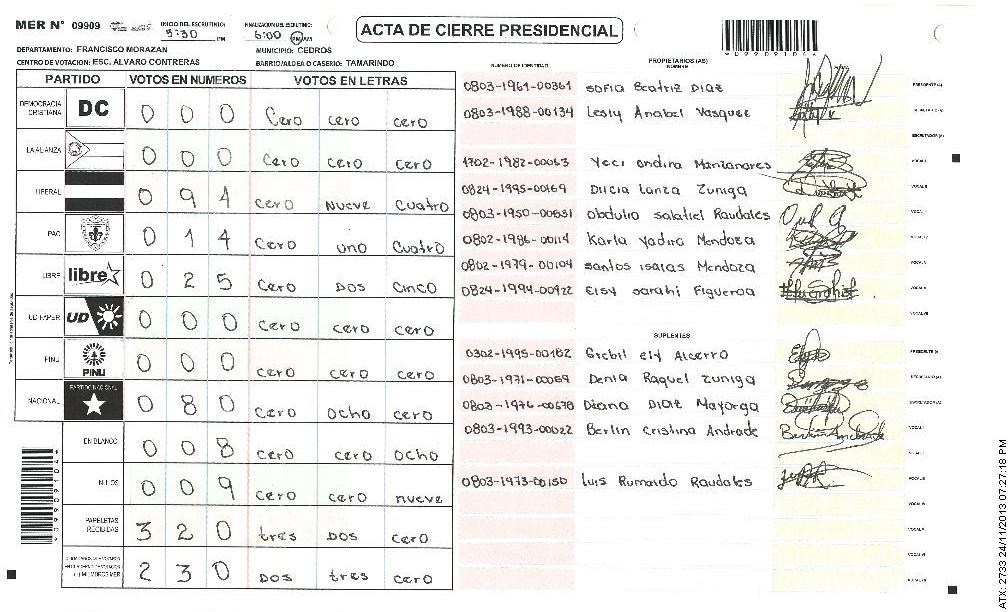 MER N° 09909 INICIO DEL ESCRUTINIO: 5:30 PM FINALIZACION DEL ESCRUTINIO: 6:00 PM AM
ACTA DE CIERRE PRESIDENCIAL
DEPARTAMENTO: FRANCISCO MORAZAN MUNICIPIO: CEDROS
CENTRO DE VOTACION: ESC. ALVARO CONTRERAS BARRIO/ALDEA O CASERIO: TAMARINDO
PARTIDO VOTOS EN NUMEROS VOTOS EN LETRAS
DEMOCRACIA CRISTIANA DC 0 0 0 Cero cero cero
LA ALIANZA 0 0 0 Cero cero cero
LIBERAL 0 9 4 cero Nueve cuatro
PAC 0 1 4 cero uno cuatro
LIBRE libre 0 2 5 cero Dos cinco
UD-FAPER UD 0 0 0 cero cero cero
PINU PINU 0 0 0 cero cero cero
NACIONAL PARTIDO NACIONAL 0 8 0 cero ocho cero
EN BLANCO 0 0 8 cero cero ocho
NULOS 0 0 9 cero cero nueve
PAPELETAS RECIBIDAS 3 2 0 tres Dos cero
2 3 0 Dos tres cero
NUMERO DE IDENTIDAD PROPIETARIOS (AS) NOMBRE
0803-1961-00361 Sofia Beatriz Diaz PRESIDENTE (A)
0803-1988-00134 Lesly Anabel Vasquez SECRETARIO (A)
ESCRUTADOR (A)
1702-1982-00063 Yeci ondina Manzanares VOCAL I
0824-1995-00169 Dilcia Lanza Zuniga VOCAL II
0803-1950-00031 obdulio salatiel Raudales
0802-1986-00114 Karla Yadira Mendoza
0802-1979-00104 santos isaias Mendoza
0824-1994-00922 Elsy sarahi Figueroa
SUPLENTES
0302-1995-00182 Grebil Ely Alcerro PRESIDENTE (A)
0803-1971-00069 Denia Raquel Zuniga SECRETARIO (A)
0803-1976-00678 Diana Diaz Mayorga ESCRUTADOR (A)
0803-1993-00022 Berlin Cristina Andrade
0803-1973-00150 Luis Rumaldo Raudales
ATX: 2733 24/11/2013 07:27:18 PM